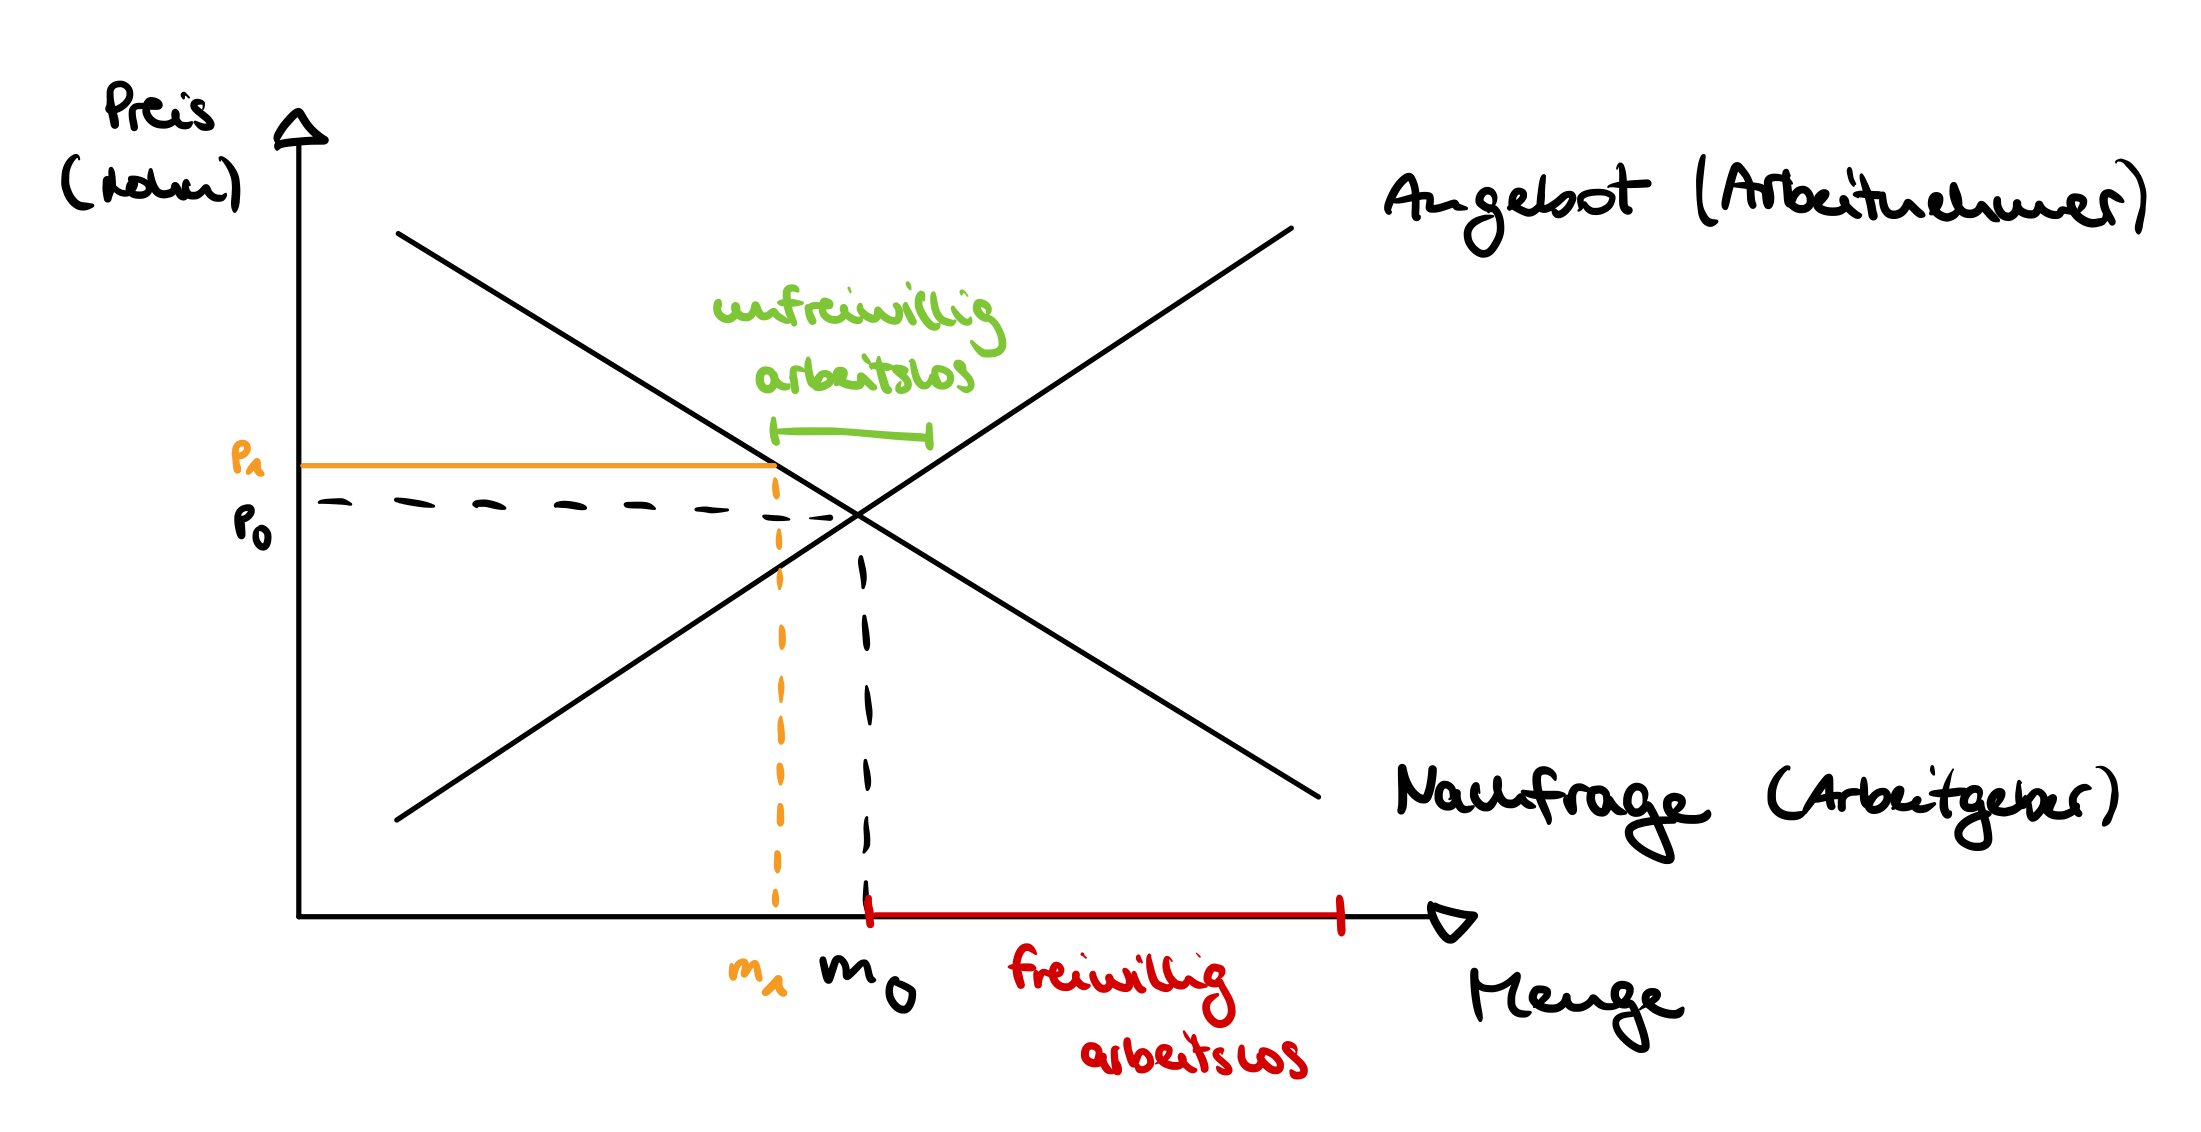 Preis
(Lohn)
Angebot (Arbeitnehmer)
unfreiwillig
arbeitslos
P1
P0
Nachfrage (Arbeitgeber)
m1 m0
freiwillig
arbeitslos
Menge